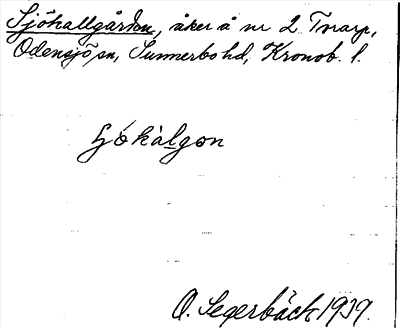 Sjöhallgården, åker å nr 2 Torarp,
Odensjö sn, Sunnerbo hd, Kronob. l.
O. Segerbäck 1939.